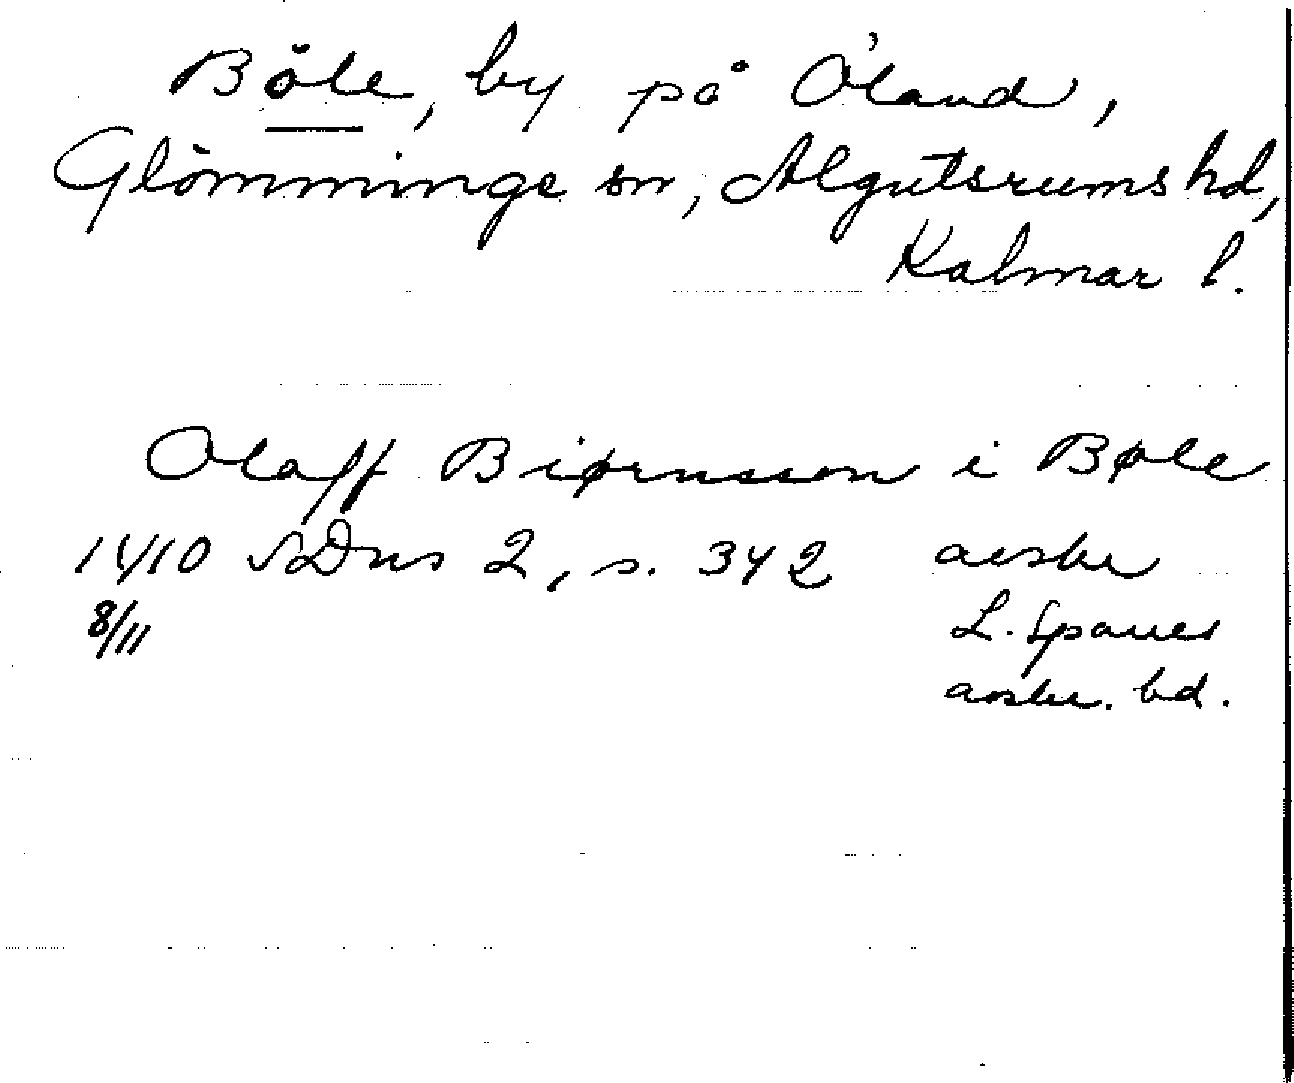 Böle, by på Öland,
Glömminge sn, Algutsrums hd,
Kalmar l.
Olaff Biørnsson i Bøle
1410 SDns 2, s. 342 avskr
8/11 L. Spanes
avskr. bd.